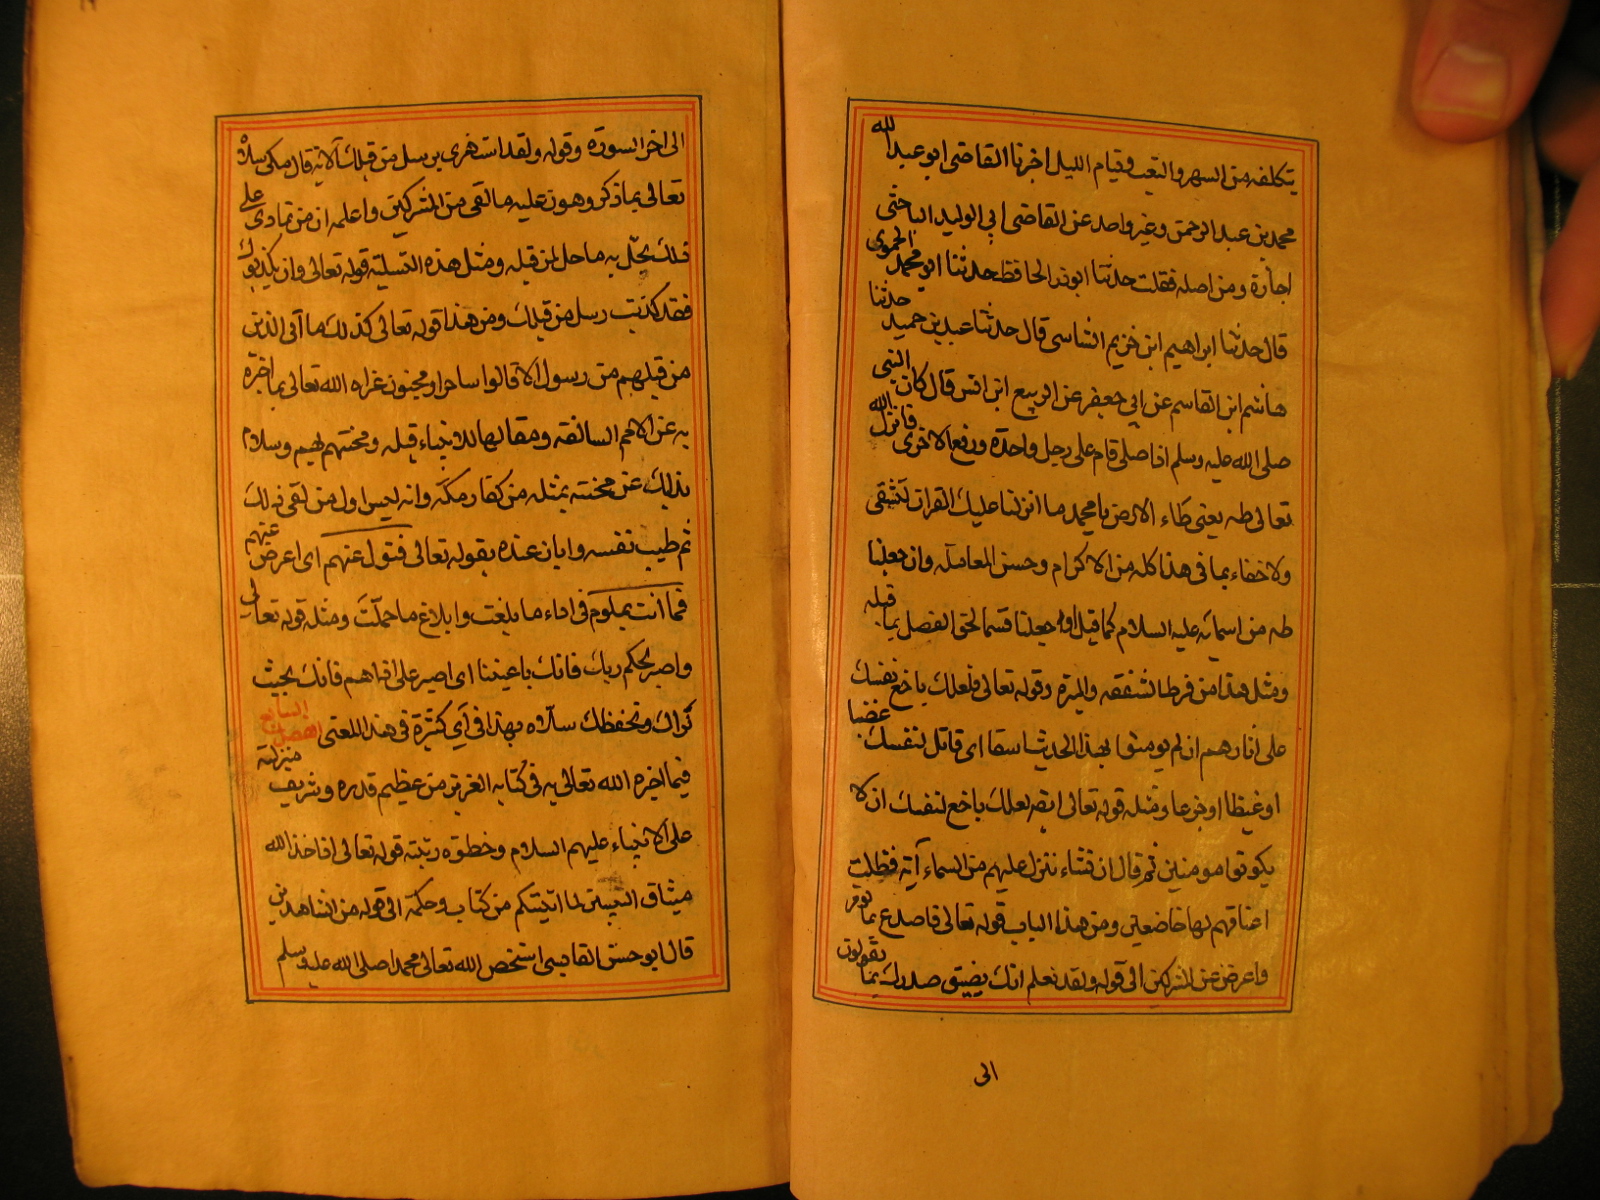 يتكلفه من السهر والتعب وقيام الليل اخبرنا القاضى ابو عبد الله
محمد بن عبد الرحمن وغير واحد عن القاضى ابى الوليد الباجى
اجازة ومن اصله نقلت حدثنا ابو ذر الحافظ حدثنا ابو محمد الحموى
قال حدثنا ابراهيم ابن خزيم الشاسى قال حدثنا عبد بن حميد حدثنا
هاشم ابن القاسم عن ابى جعفر عن الربيع ابن انس قال كان النبى
صلى الله عليه وسلم اذا صلى قام على رجل واحدة ورفع الاخرى فانزل الله
تعالى طه يعنى طاء الارض يا محمد ما انزلنا عليك القران لتشقى
ولا خفاء بما فى هذا كله من الاكرام وحسن المعاملة وان جعلنا
طه من اسمائه عليه السلام كما قيل او جعلنا قسما لحق الفصل بما قبله
ومثل هذا من فرط الشفقه والمبرة وقوله تعالى فلعلك باخع نفسك
على اثارهم ان لم يومنوا بهذا الحديث اسفا اى قاتل لنفسك غضبا
او غيظا او جزعا ومثله قوله تعالى ايضه لعلك باخع لنفسك ان لا
يكونوا مومنين ثم قال ان نشاء ننزل عليهم من السماء آية فظلت
اعناقهم لها خاضعين ومن هذا الباب قوله تعالى فاصدع بما تومر
واعرض عن المشركين الى قوله ولقد نعلم انك يضيق صدرك بما يقولون
الى
الى اخر السورة وقوله ولقد استهزى برسل من قبلك الاية قال مكى سلاه
تعالى بما ذكر وهون عليه ما لقى من المشركين واعلمه ان من تمادى على
ذلك يحل به ما حل لمن قبله ومثل هذه التسلية قوله تعالى وان يكذبوك
فقد كذبت رسل من قبلك ومن هذا قوله تعالى كذلك ما آتى الذين
من قبلهم من رسول الا قالوا ساحر او مجنون عزاه الله تعالى بما اخبره
به عن الامم السالفة ومقالها للانبياء قبله ومحنتهم بهم وسلاه
بذلك عن محنته بمثله من كفار مكة وانه ليس اول من لقى ذلك
ثم طيب نفسه وابان عذره بقوله تعالى فتول عنهم اى اعرض عنهم
فما انت بملوم فى اداء ما بلغت وابلاغ ما حملت ومثله قوله تعالى
واصبر لحكم ربك فانك باعيننا اى اصبر على اذاهم فانك بحيث
نراك ونحفظك سلاه بهذا فى آي كثيرة فى هذ المعنى الفصل السابع
فيما اخبره الله تعالى به فى كتابه العزيز من عظيم قدره وشريف منزلته
على الانبياء عليهم السلام وخطوه رتبته قوله تعالى اذ اخذ الله
ميثاق النبيين لما اتيتكم من كتاب وحكمة الى قوله من الشاهدين
قال ابو حسن القابسى استخص الله تعالى محمدا صلى الله عليه وسلم